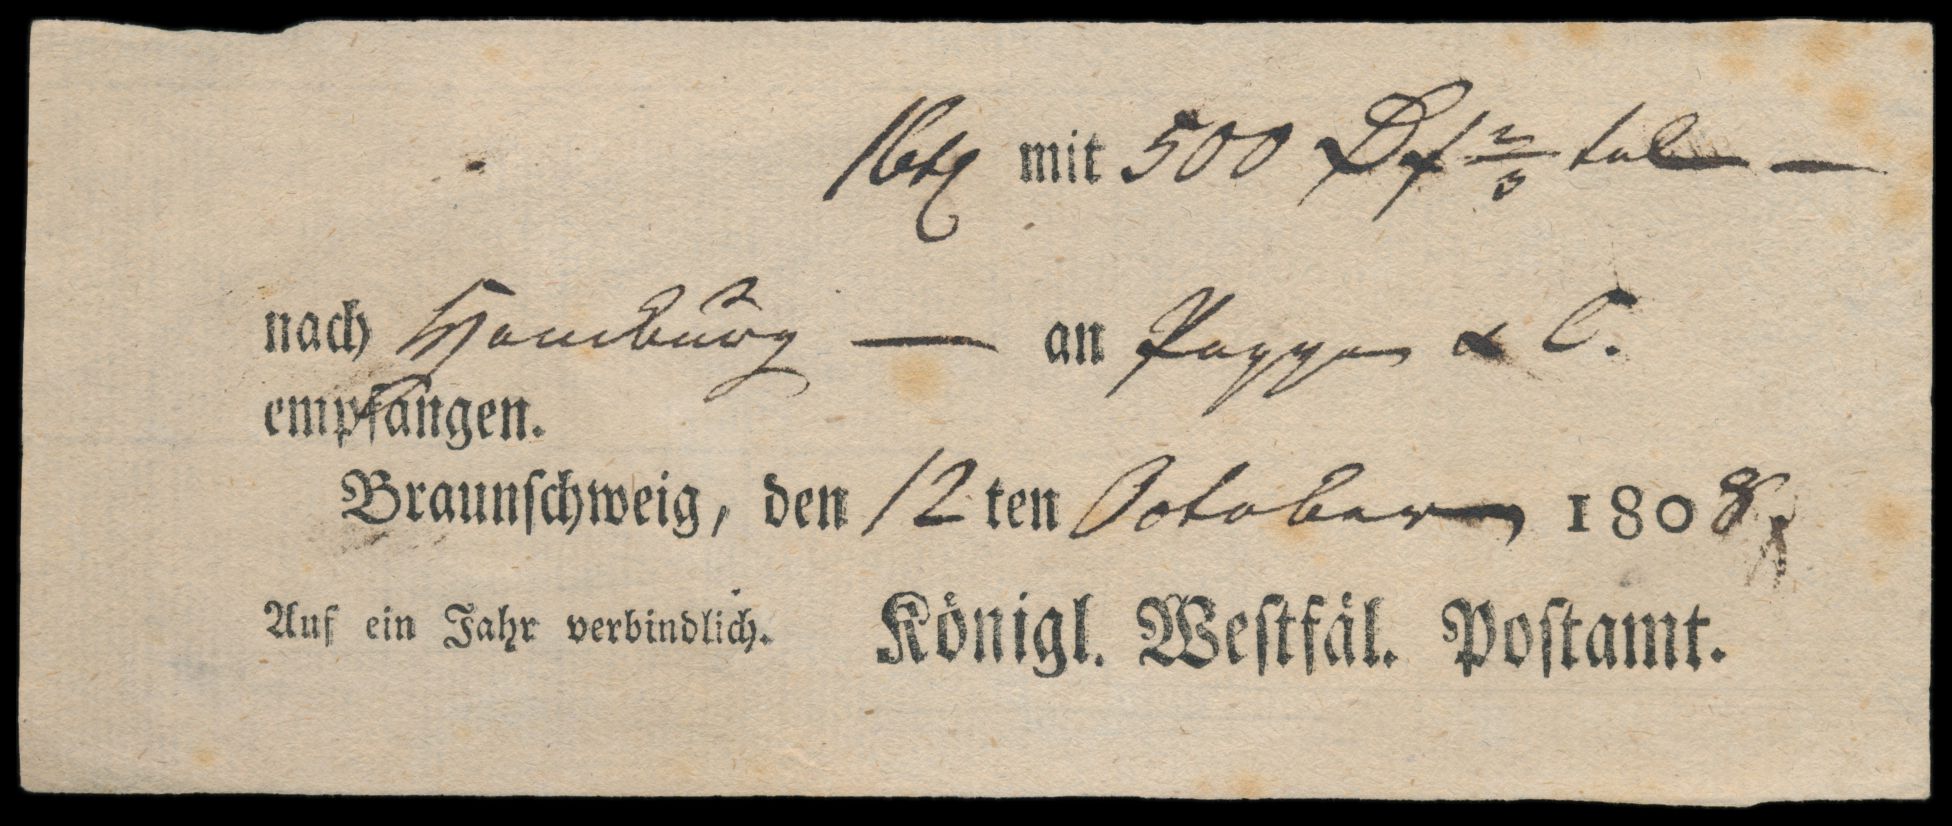 mit 500
nach Hamburg — an Pappe & C.
empfangen.
Braunschweig, den 12 ten October 1808.
Auf ein Jahr verbindlich. Königl. Westfäl. Postamt.